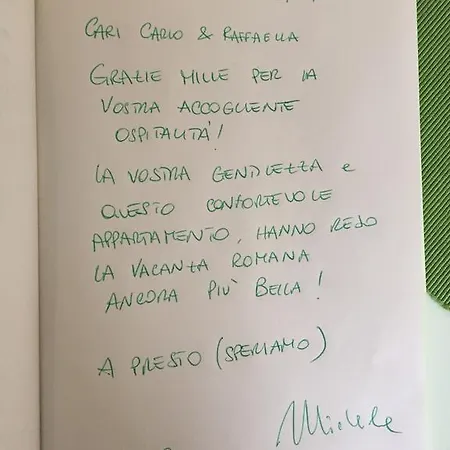 CARI CARLO & RAFFAELLA
GRAZIE MILLE PER LA
VOSTRA ACCOGLIENTE
OSPITALITÀ!
LA VOSTRA GENTILEZZA e
QUESTO CONFORTEVOLE
APPARTAMENTO, HANNO RESO
LA VACANZA ROMANA
ANCORA PIÙ BELLA!
A PRESTO (SPERIAMO)
Michele